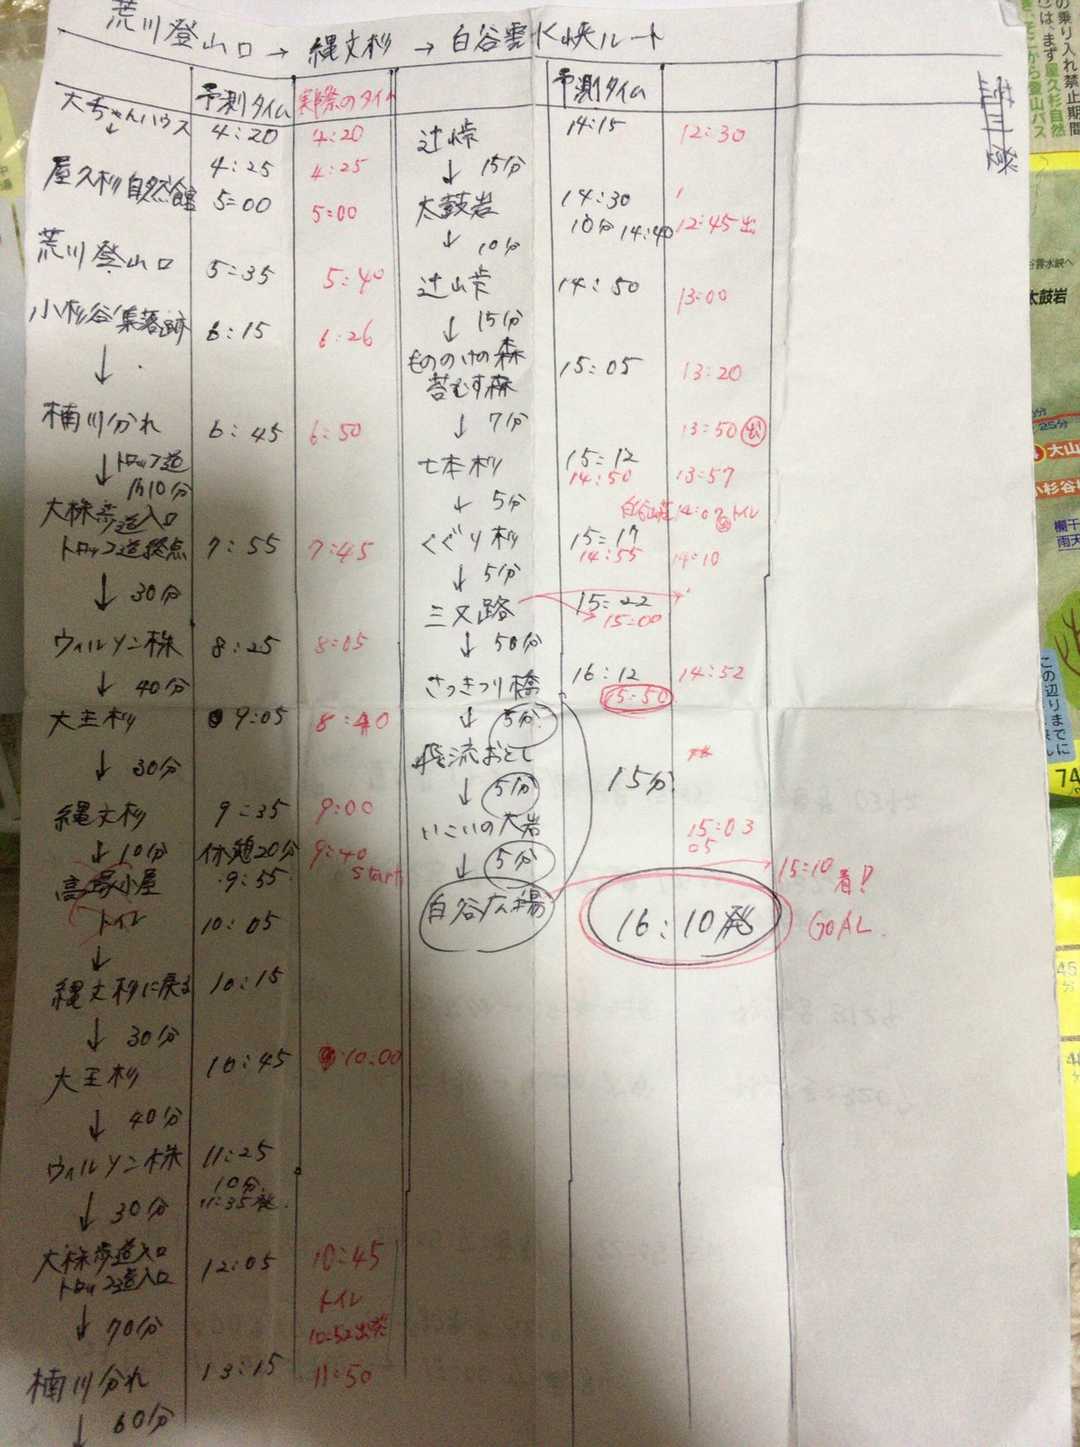 荒川登山口→縄文杉→白谷雲水峡ルート
予測タイム 実際のタイム
大ちゃんハウス 4:20 4:20
↓
4:25 4:25
屋久杉自然館 5:00 5:00
荒川登山口 5:35 5:40
小杉谷集落跡 6:15 6:26
↓
楠川分れ 6:45 6:50
↓トロッコ道
1h10分
大株歩道入口
トロッコ道終点 7:55 7:45
↓30分
ウィルソン株 8:25 8:05
↓40分
大王杉 9:05 8:40
↓30分
縄文杉 9:35 9:00
↓10分 休憩20分 9:40
start
高塚小屋 9:55
トイレ 10:05
↓
縄文杉に戻る 10:15
↓30分
大王杉 10:45 10:00
↓40分
ウィルソン株 11:25
10分
↓30分 11:35発
大株歩道入口
トロッコ道入口 12:05 10:45
トイレ
↓70分 10:52出発
楠川分れ 13:15 11:50
↓60分
予測タイム
辻峠 14:15 12:30
↓15分
太鼓岩 14:30
↓10分 10分 14:40 12:45出
辻峠 14:50 13:00
↓15分
もののけの森 15:05 13:20
苔むす森
↓7分 13:50出
七本杉 15:12
14:50 13:57
↓5分 14:07 トイレ
くぐり杉 15:17
14:55 14:10
↓5分
三叉路 15:22
15:00
↓50分
さつきつり橋 16:12 14:52
15:50
↓5分
飛流おとし
↓5分 15分
いこいの大岩 15:03
05
↓5分
白谷広場 16:10発 15:10
着!!
GOAL
の乗り入れ禁止期間
は、まず屋久杉自然
こから登山バス
谷雲水峡へ
太鼓岩
25分
大山
小杉谷
欄干
雨天
この辺りまでに
74
45
分